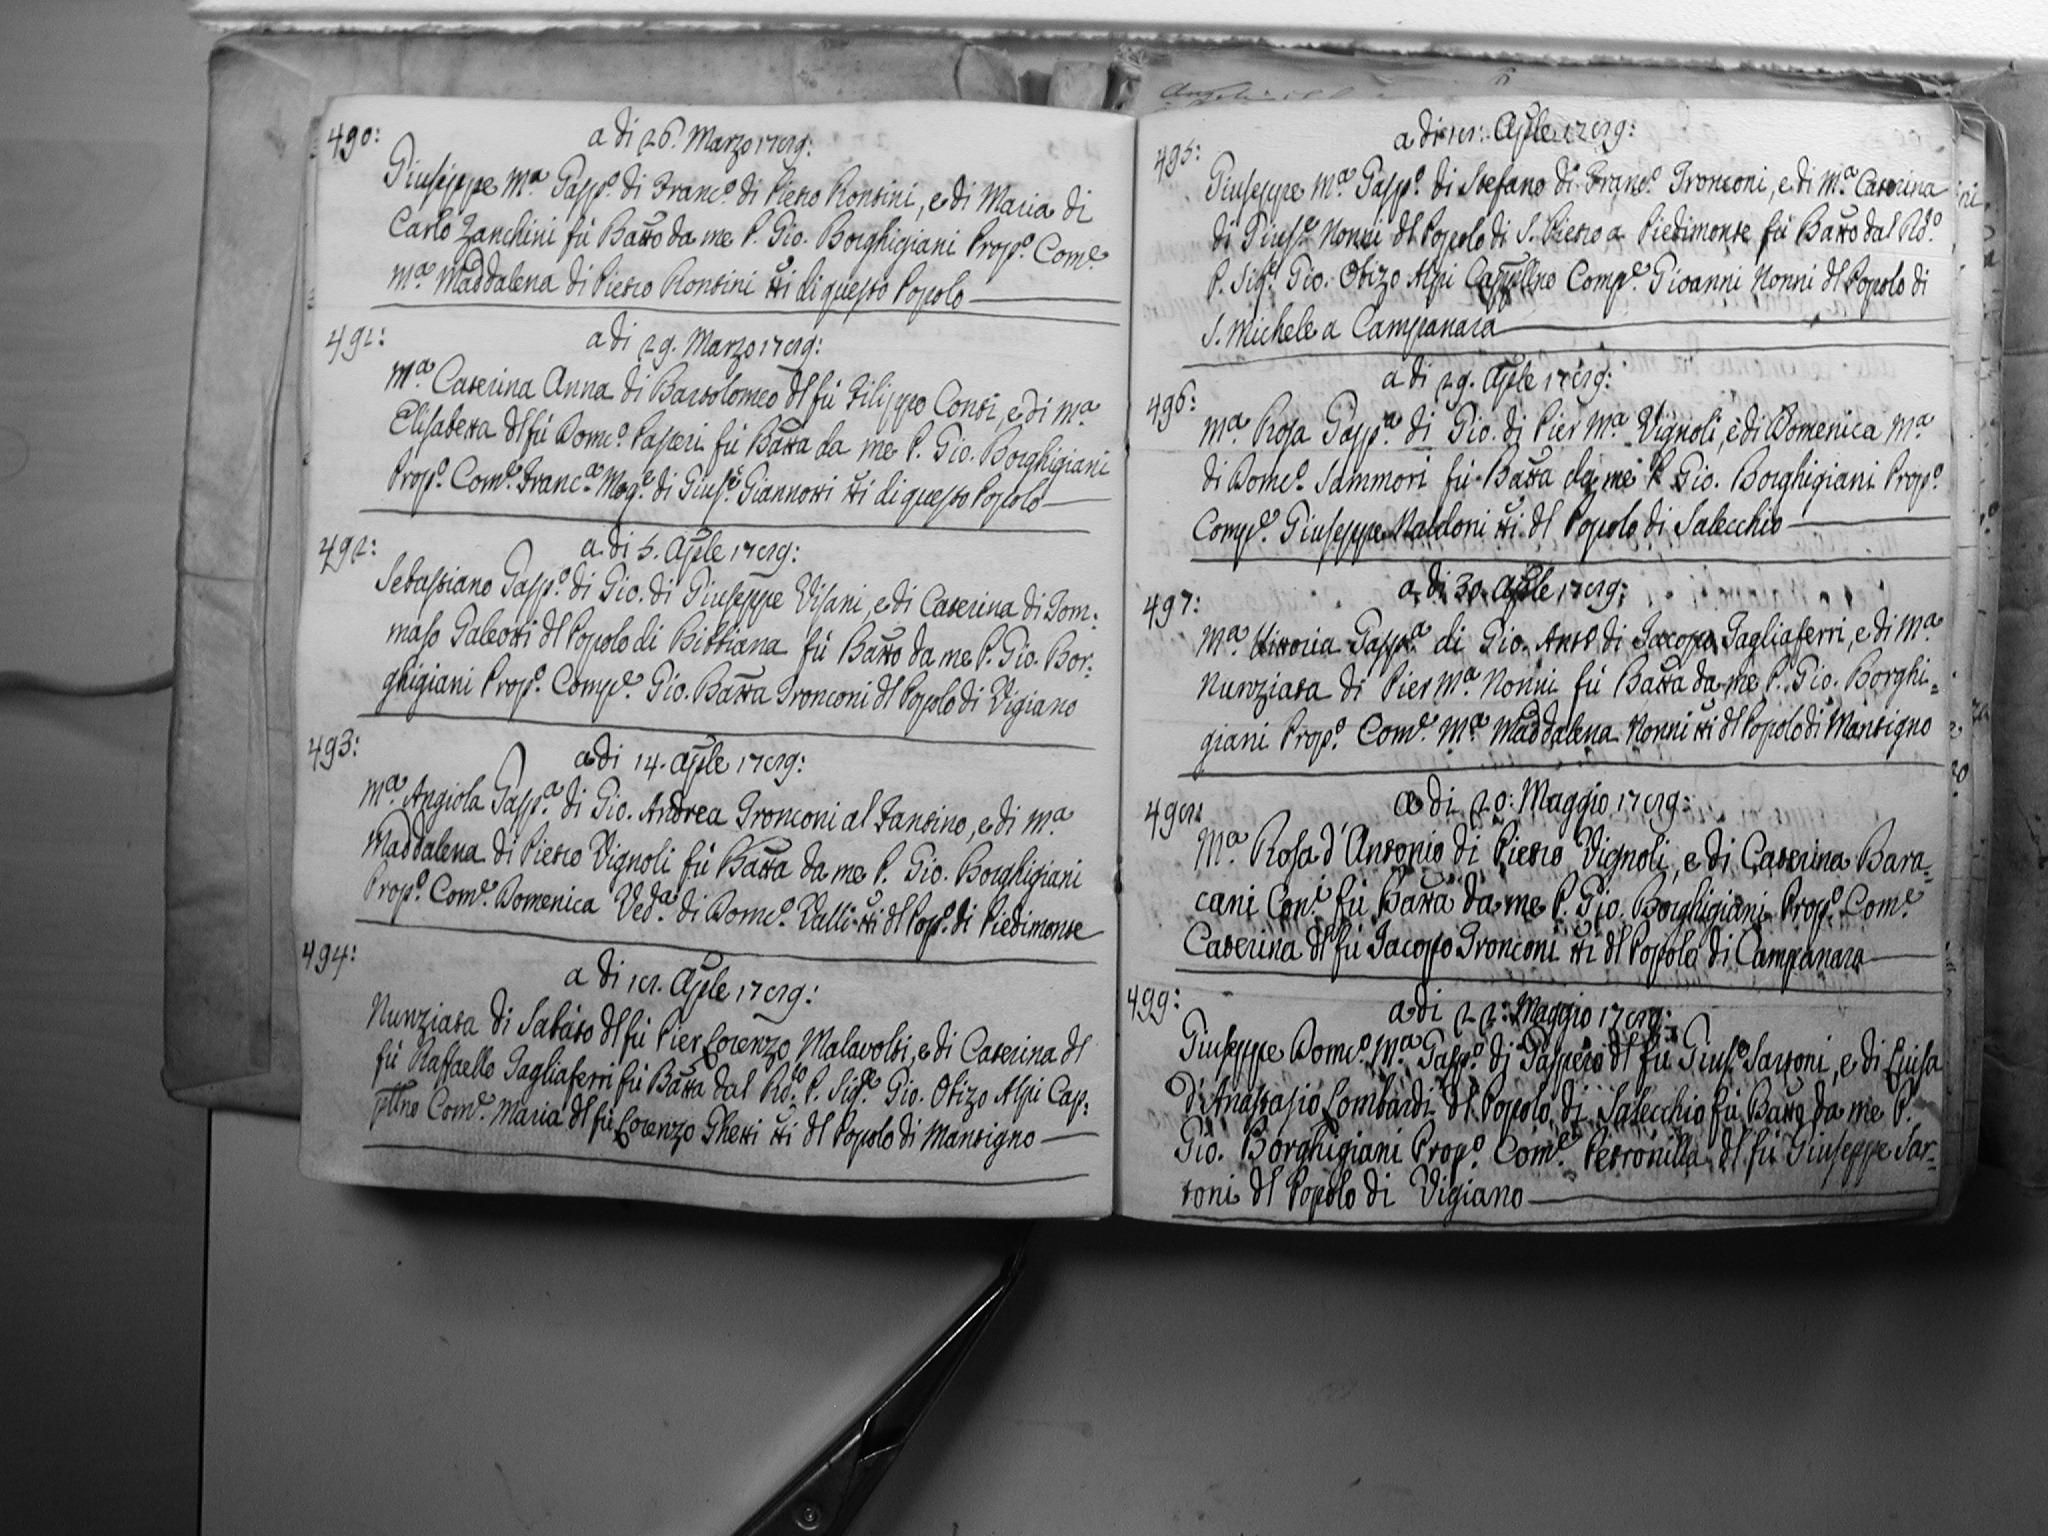 490:
a di 26. Marzo 1789:
Giuseppe Mª Gaspº di Francº di Pietro Rontini, e di Maria di
Carlo Zanchini fù Batto da me P. Gio. Borghigiani Propº Comͤ
Mª Maddalena di Pietro Rontini tti di questo Popolo
491:
a di 29. Marzo 1789:
Mª Caterina Anna di Bartolomeo dl fù Filippo Conti, e di Mª
Elisabetta dl fù Domcº Pasteri fù Batta da me P. Gio. Borghigiani
Propº Comͤ Francª Mogͤ di Giusͤ Giannotti tti di questo Popolo
492:
a di 5. Aple 1789:
Sebastiano Gaspº di Gio. di Giuseppe Visani, e di Caterina di Tom:
maso Galeotti dl Popolo di Bibbiana fù Batto da me P. Gio. Bor:
ghigiani Propº Compͤ Gio. Batta Tronconi dl Popolo di Vigiano
493:
a di 14. Aple 1789:
Mª Angiola Gaspª di Gio. Andrea Tronconi al Fantino, e di Mª
Maddalena di Pietro Vignoli fù Batta da me P. Gio. Borghigiani
Propº Comͤ Domenica Vedª di Domcº Valli tti dl Popº di Piedimonte
494:
a di 18. Aple 1789:
Nunziata di Sabato dl fù Pier Lorenzo Malavolti, e di Caterina dl
fù Raffaello Tagliaferri fù Batta dal Rdº P. Sigͤ Gio. Obizo Alpi Cap:
pllno Comͤ Maria dl fù Lorenzo Ghetti tti dl Popolo di Mantigno
495:
a di 18: Aple 1789:
Giuseppe Mª Gaspº di Stefano di Francº Tronconi, e di Mª Caterina
di Giusͤ Nonni dl Popolo di S. Pietro a Piedimonte fù Batto dal Rdº
P. Sigͤ Gio. Obizo Alpi Cappllno Compͤ Gioanni Nonni dl Popolo di
S. Michele a Campanara
496:
a di 29. Aple 1789:
Mª Rosa Gaspª di Gio. di Pier Mª Vignoli, e di Domenica Mª
di Domcº Sammori fù Batta da me P. Gio. Borghigiani Propº
Compͤ Giuseppe Naldoni tti dl Popolo di Salecchio
497:
a di 30. Aple 1789:
Mª Vittoria Gaspª di Gio. Antº di Jacopo Tagliaferri, e di Mª
Nunziata di Pier Mª Nonni fù Batta da me P. Gio. Borghi=
giani Propº Comͤ Mª Maddalena Nonni tti dl Popolo di Mantigno
498:
a di 20: Maggio 1789:
Mª Rosa d'Antonio di Pietro Vignoli, e di Caterina Bara=
cani Conͥ fù Batta da me P. Gio. Borghigiani Propº Comͤ
Caterina dl fù Jacopo Tronconi tti dl Popolo di Campanara
499:
a di 22: Maggio 1789:
Giuseppe Domcº Mª Gaspº di Gaspero dl fù Giusͤ Sartoni, e di Luisa
d'Anastasio Lombardi dl Popolo di Salecchio fù Batto da me P.
Gio. Borghigiani Propº Comͤ Petronilla dl fù Giuseppe Sar=
toni dl Popolo di Vigiano